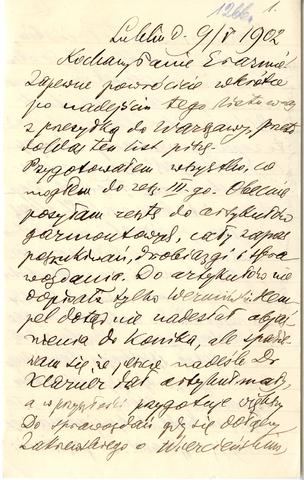 126
1.
Lublin d. 9/V 1902
Kochany Panie Erazmie!
Zapewne powrócicie wkrótce
po nadejściu tego listu
z przesyłką do Warszawy, przeto
ten list piszę.
Przygotowałem wszystko, co
mogłem do zesz. III-go. Obecnie
posyłam resztę do artykułów
garmontowych, cały zapas
poszukiwań, drobiazgi i spra-
wozdania. Do artykułów nie
tylko Hem-
pel dotąd nie nadesłał objaś-
nienia do Konika, ale spodzie-
wam się, że jeszcze nadeśle. Dr
Klarner dał artykuł mały,
a w przyszłości przygotuje większy
Do sprawozdań gdy się dołączy
Zakrzewskiego o